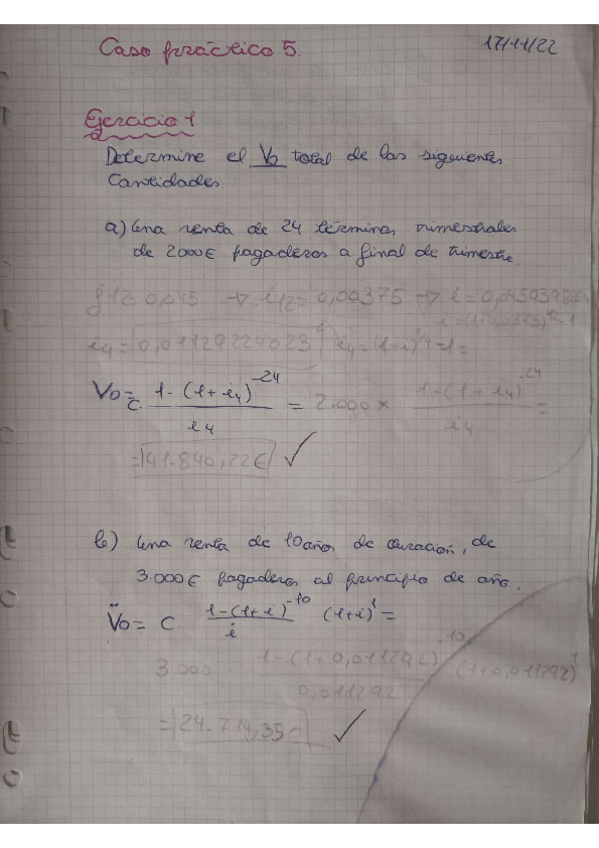 Caso práctico 5.
17/11/22
Ejercicio 1
Determine el V0 total de las siguientes
Cantidades
a) Una renta de 24 términos trimestrales
de 2000€ pagaderos a final de trimestre.
j12 = 0,045 → i12 = 0,00375 → i = 0,0459398
i4 = 0,01129224023 i4 = (1+i)^1/4 - 1 =
V0 = C (1-(1+i4)^-24)/i4 = 2.000 × (1-(1+i4)^-24)/i4 =
= 41.840,22€ ✓
b) Una renta de 10 años de duración, de
3.000€ pagaderos al principio de año.
V̈0 = C (1-(1+i)^-10)/i (1+i)^1 =
3.000 (1-(1+0,011292)^-10)/0,011292 (1+0,011292)^1
= 24.714,35€ ✓